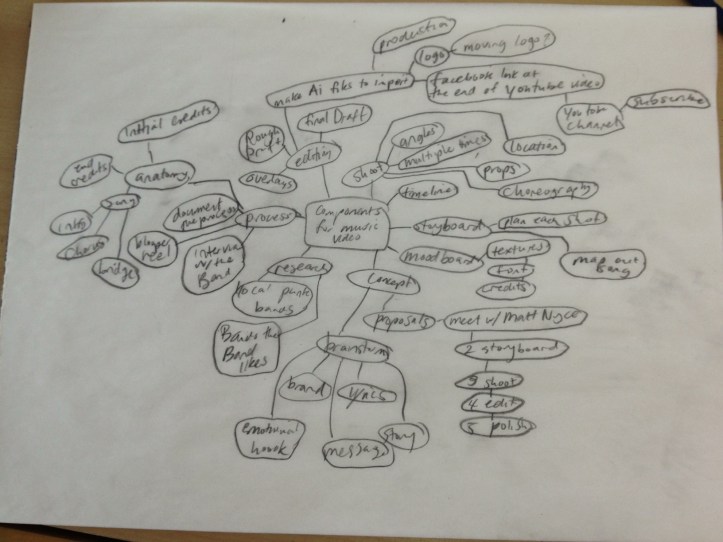 production
logo
moving logo?
make Ai files to import
facebook link at
the end of Youtube video
Youtube
channel
subscribe
initial credits
final Draft
Rough
Draft
editing
angles
multiple times
location
shoot
end
credits
anatomy
song
intro
chorus
bridge
props
timeline
choreography
document
the process
process
blooper
reel
interview
w/ the
Band
Components
for music
video
storyboard
plan each shot
map out
song
moodboard
textures
font
credits
research
local punk
bands
Bands the
Band
likes
concept
proposals
meet w/ Matt
2 storyboard
3 shoot
4 edit
5 polish
brainstorm
brand
lyrics
emotional
hook
message
story